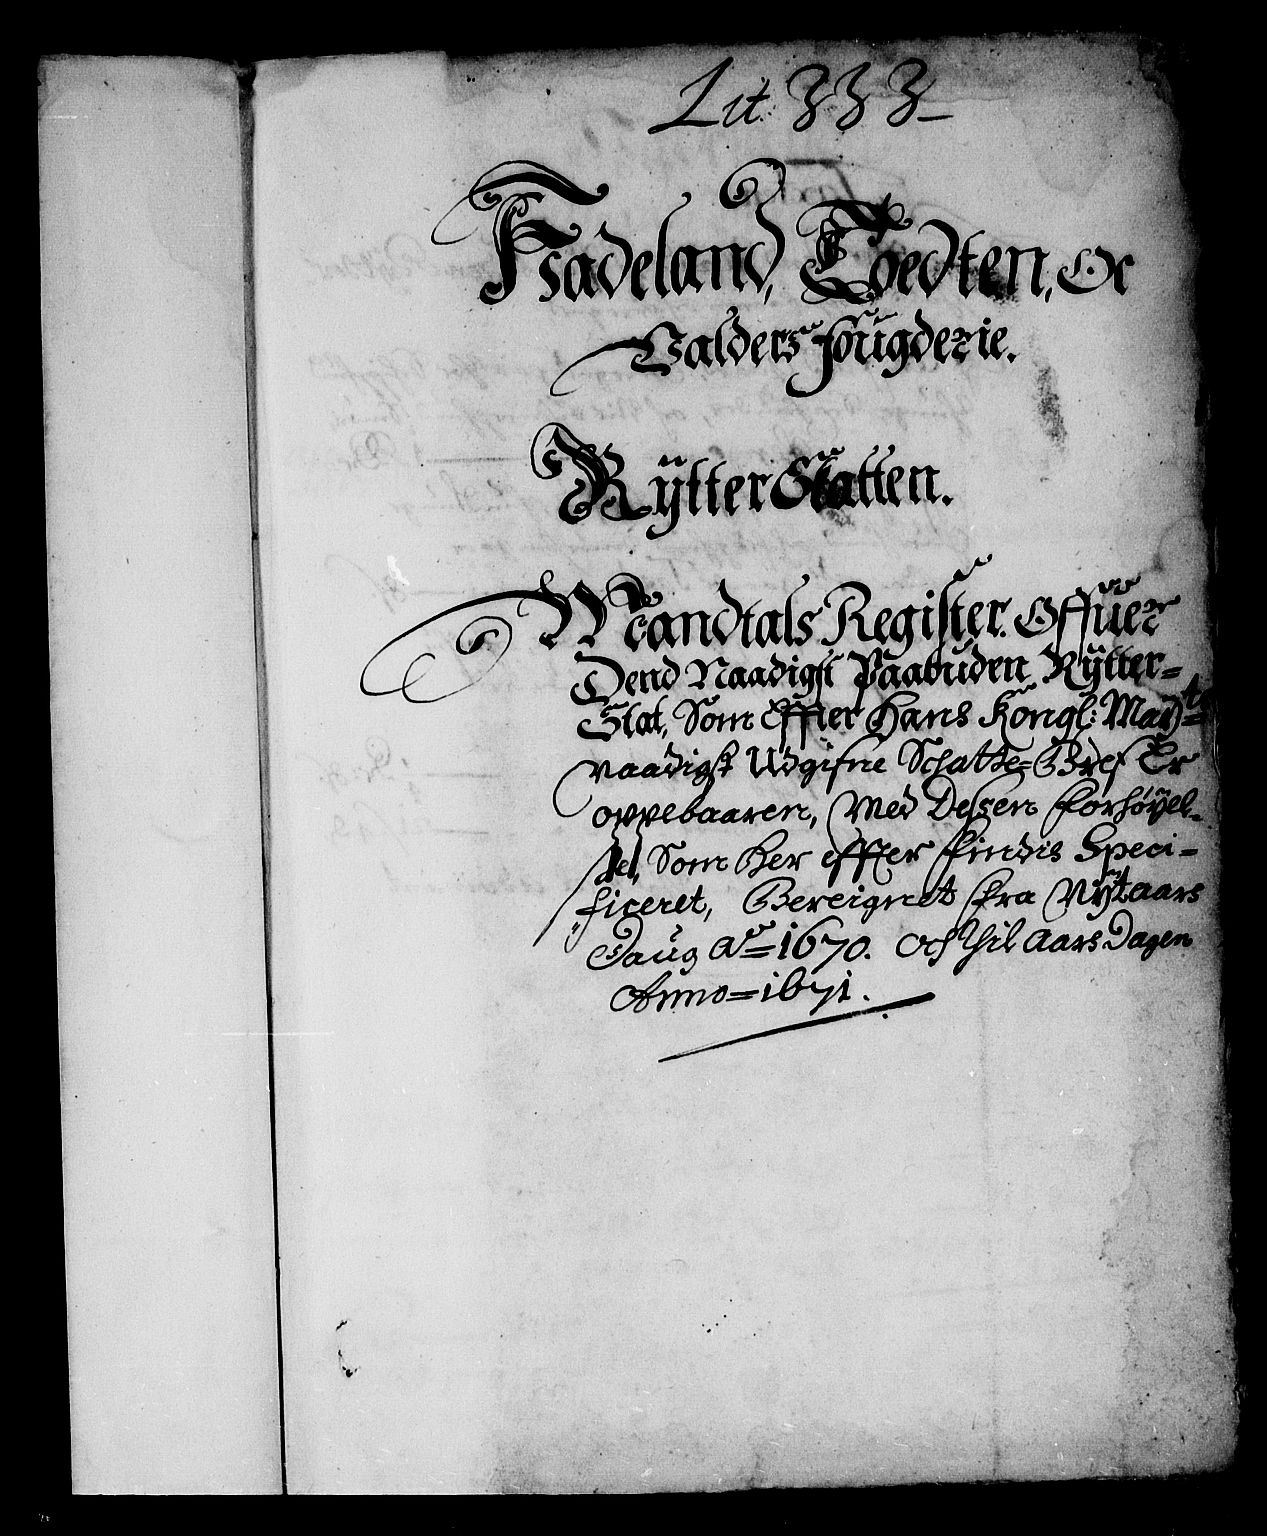 Lit: 333
Hadeland, Toedten, oc
Valders fougderie.
Rÿtter Skatten.
Mandtals Register. Offuer
Dend Naadigst Paabuden Rÿtter=
Skat, Som Effter Hans Kongl: Maÿ:ts
naadigst Udgifne Schatte=Bref Er
oppebaaren, Med Dessen forhöÿel-
se, Som Her effter findis Speci=
ficeret, Bereignet fra Nÿtaars
Daug Ao= 1670. och thil Aars Dagen
Anno= 1671.